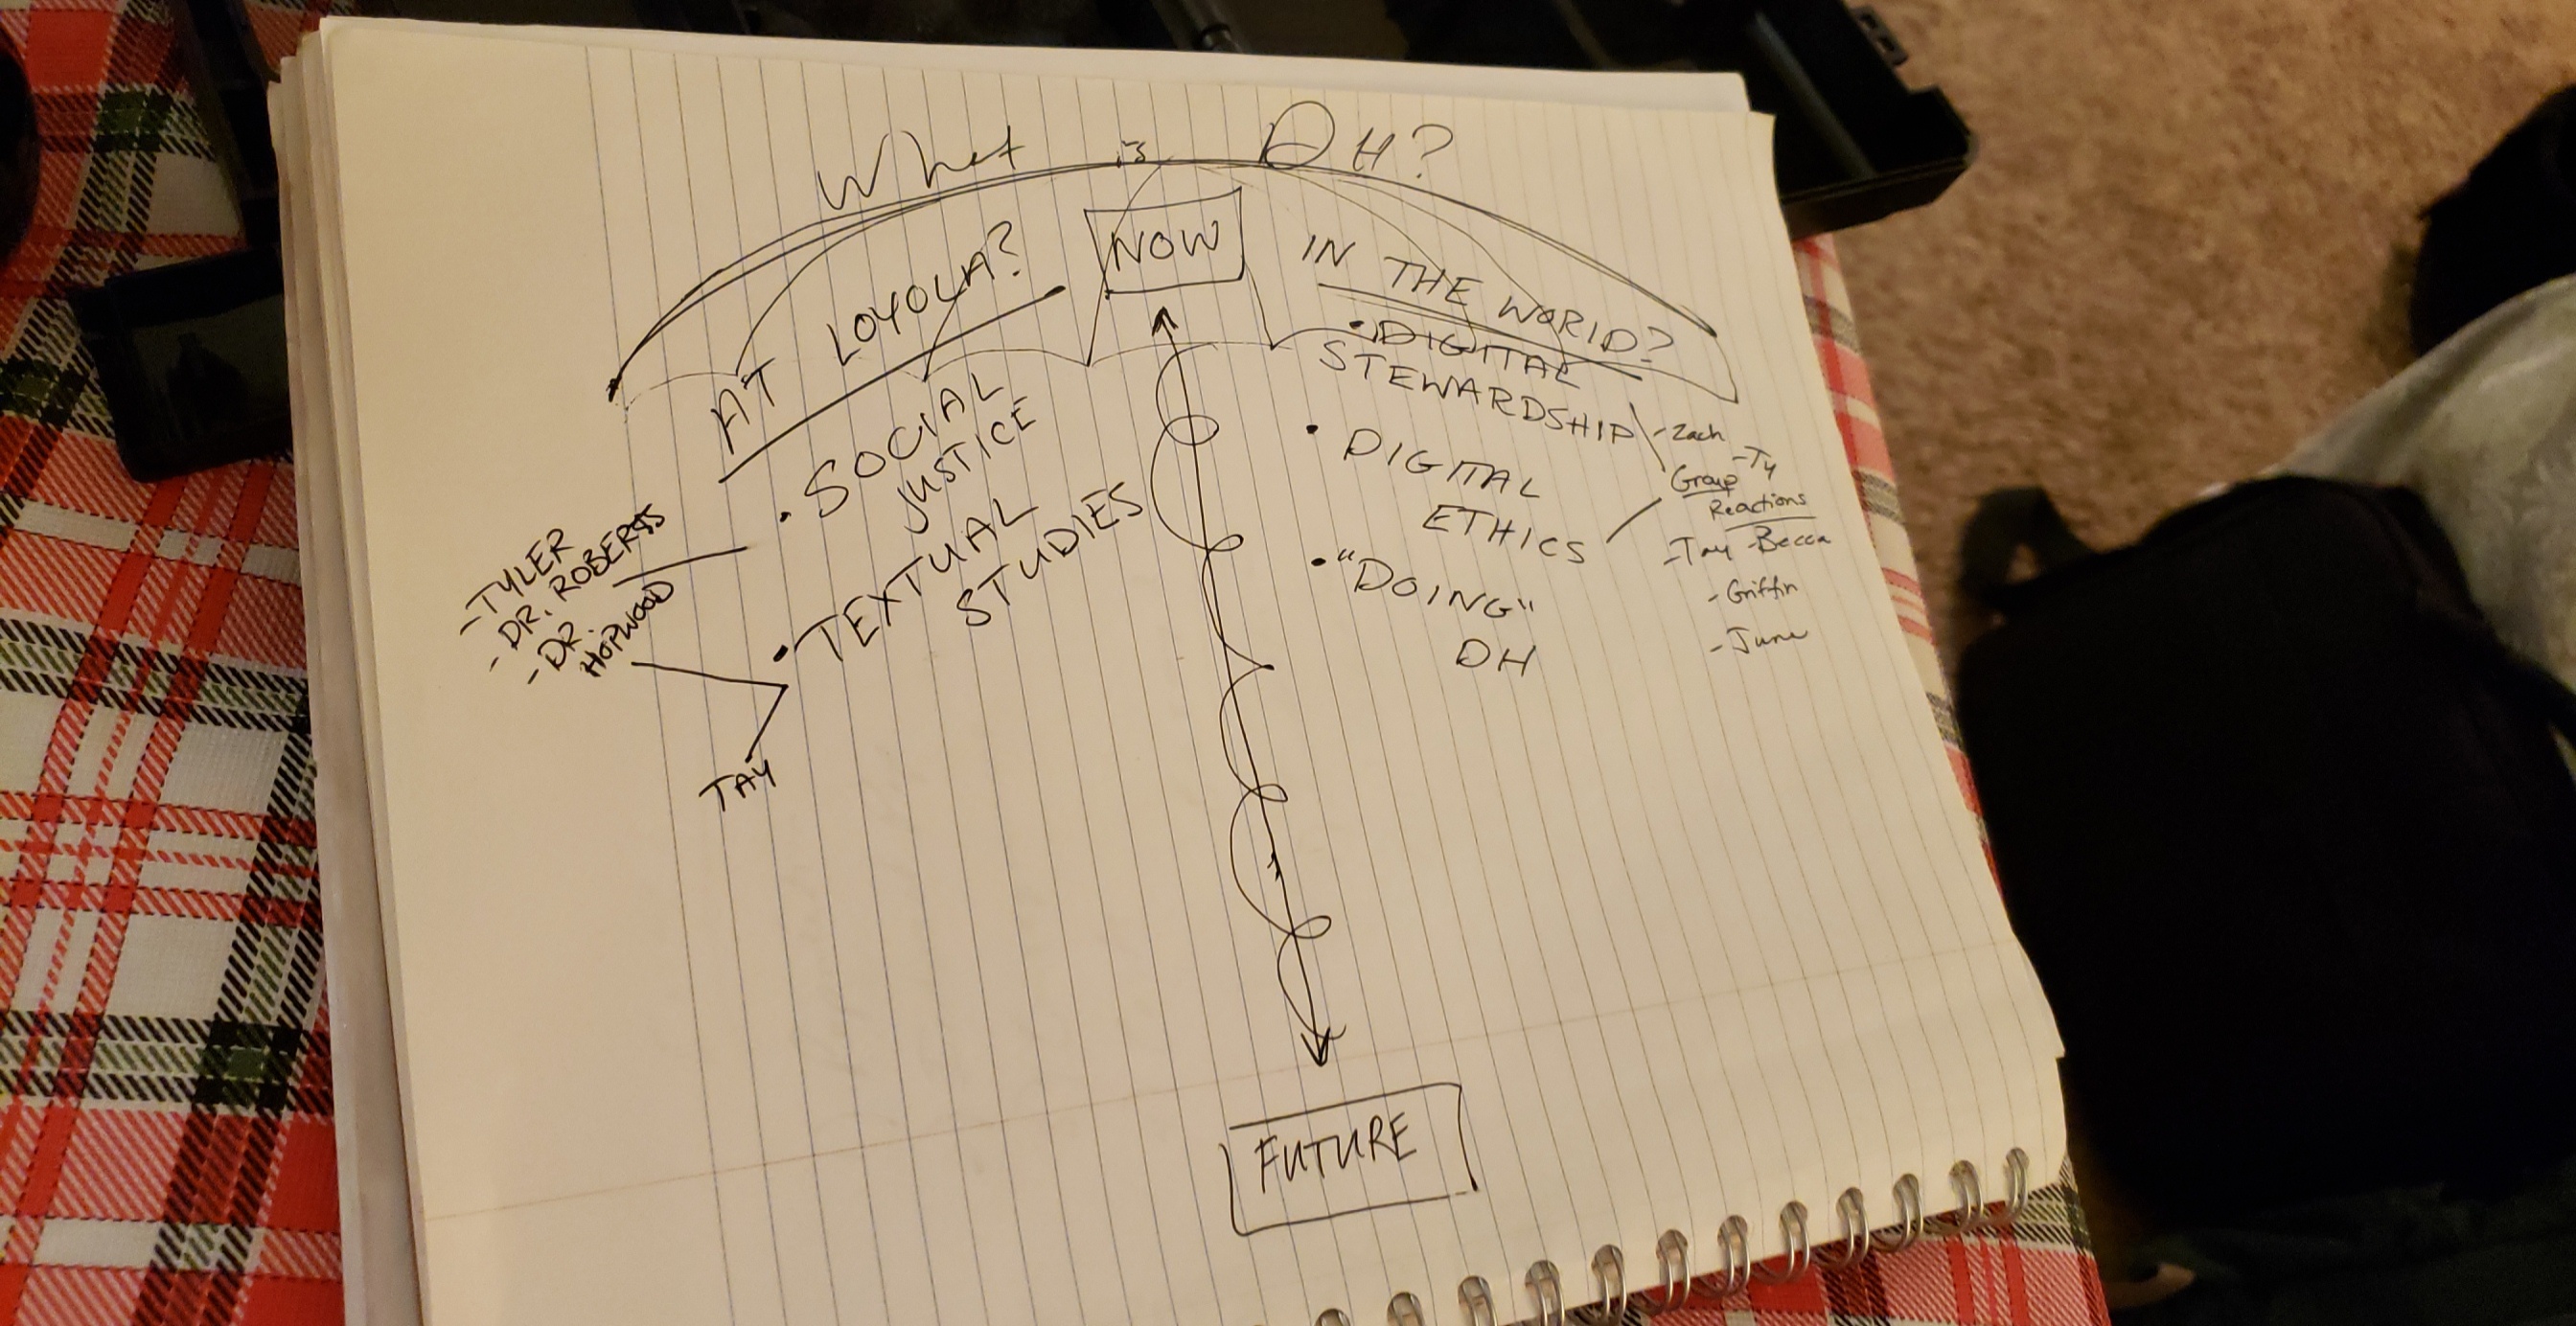 What is DH?
AT LOYOLA?
NOW
IN THE WORLD?
• SOCIAL
JUSTICE
• TEXTUAL
STUDIES
- TYLER
- DR. ROBERTS
- DR.
HOPWOOD
TAY
• DIGITAL
STEWARDSHIP
• DIGITAL
ETHICS
• "DOING"
DH
- Zach
- Ty
Group
Reactions
- Tay - Becca
- Griffin
- June
FUTURE